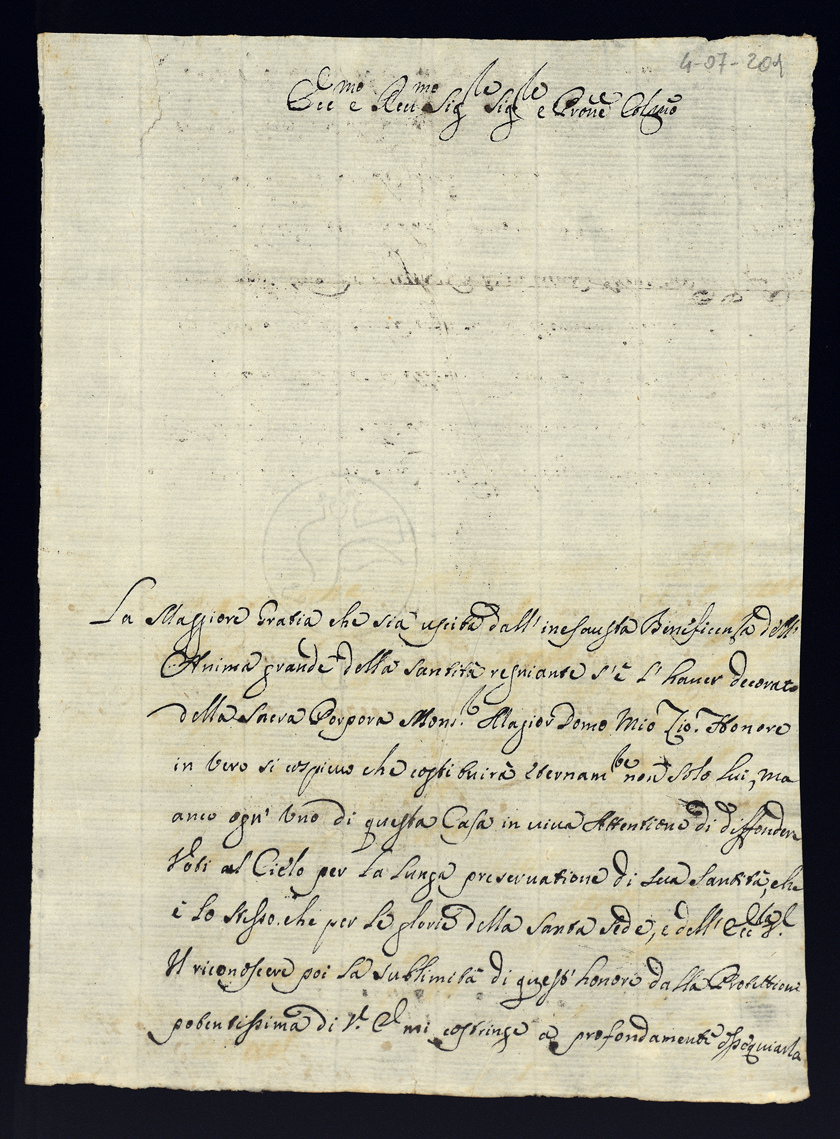 4-07-201
Ecc.mo e Reu.mo Sig.le Sig.le e Pr̃one Col.mo
La Maggiore Gratia che sia uscita dall' inesausta Beneficenza dell'
Anima grande della Santità regniante s'è l' hauer decorato
della Sacra Porpora Mons.r Magior Domo Mio Zio. Honore
in Vero si cospicuo che costituirà Eternam.te non solo lui, ma
anco ogn' Uno di questa Casa in uiua Attentione di diffondere
Voti al Cielo per la lunga preseruatione di sua Santità, che
è lo stesso che per le glorie della Santa Sede, e dell' Ecc.
Il riconoscere poi la sublimità di quest' honore dalla Protettione
potentissima di V. E. mi costringe a profondamente ossequiarla